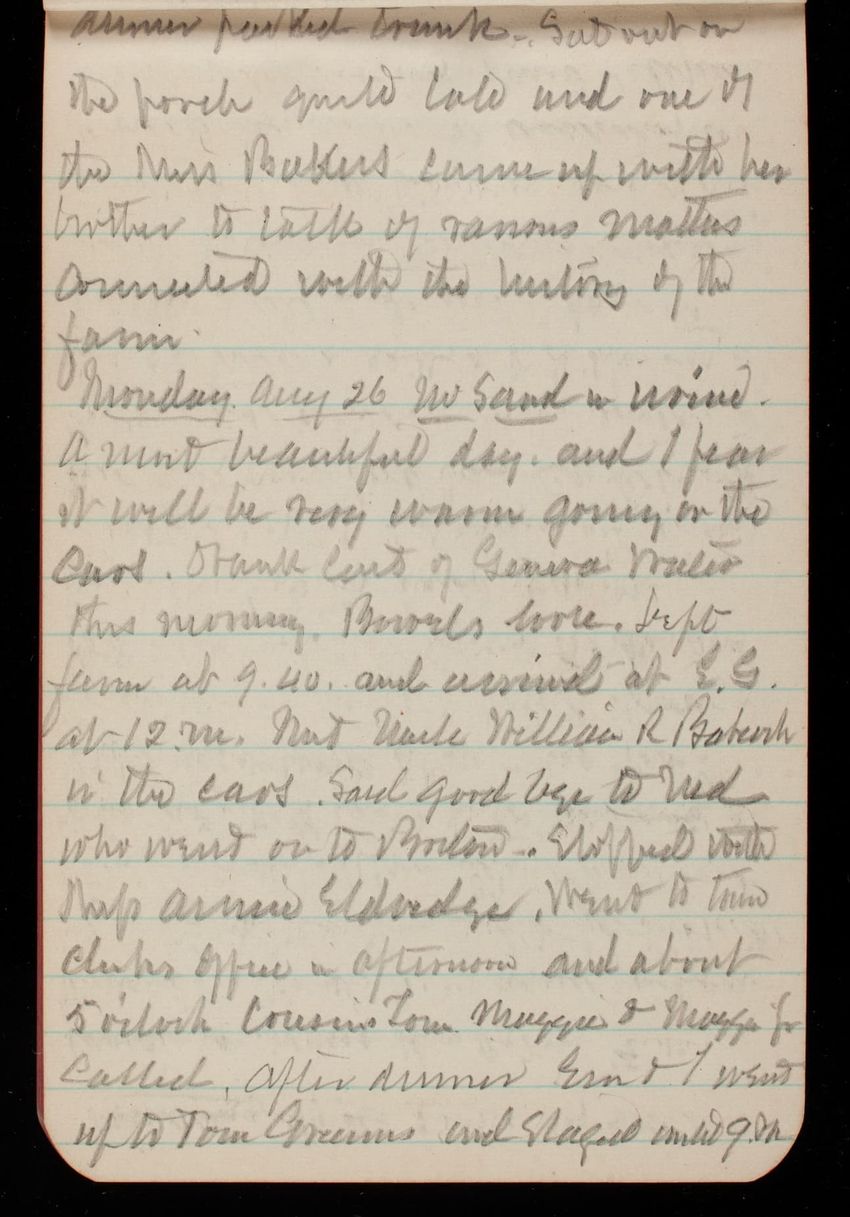 dinner packed trunk. Sat out on
the porch quite late and one of
the Miss Bakers came up with her
brother to talk of various matters
connected with the history of the
farm.
Monday Aug 26 No Sand in urine.
A most beautiful day. and I fear
it will be very warm going on the
Cars. Drank Cent of Geneva Water
this morning. Bowels loose. Left
farm at 9.40. and arrived at E.G.
at 12.m. Met Uncle William R Babcock
in the cars. Said good bye to Ned
who went on to Boston. Stopped with
Miss Annie Eldredge. Went to town
clerks office in afternoon and about
5 o'clock Cousins Tom Maggie & Maggie Jr
Called. After dinner Em & I went
up to Tom Greens and Staged until 9.